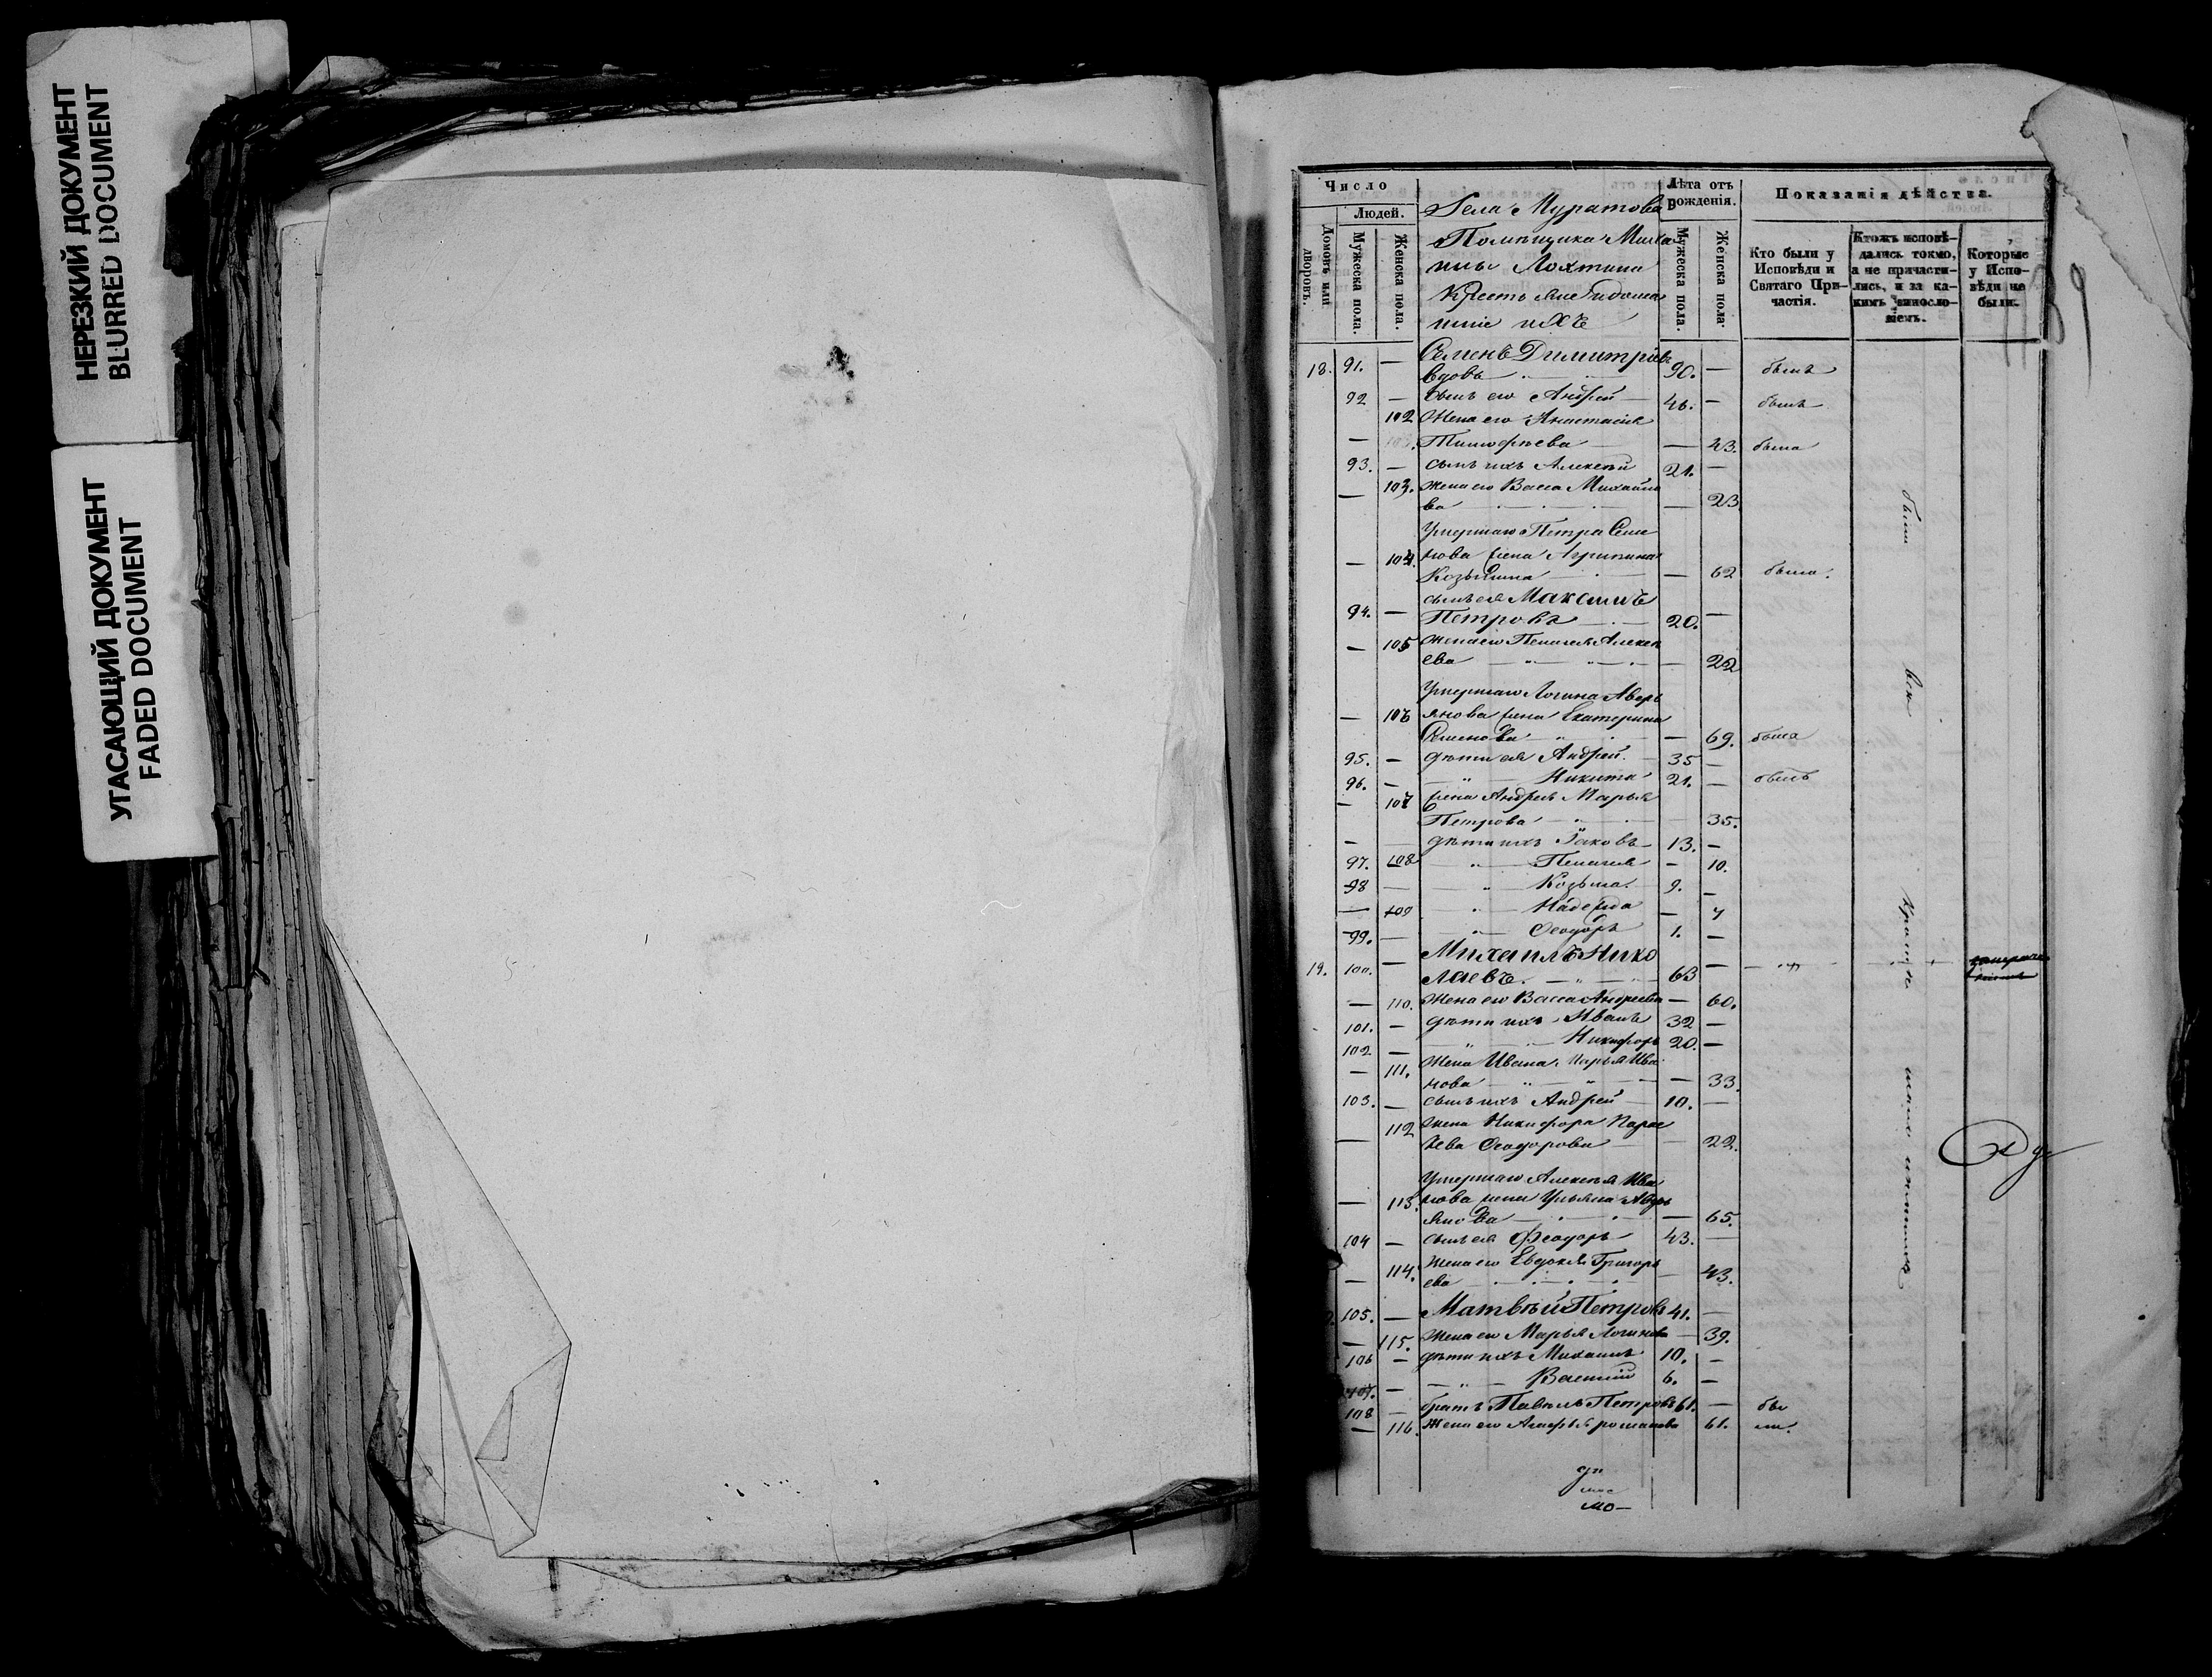 НЕРЕЗКИЙ ДОКУМЕНТ
BLURRED DOCUMENT
УГАСАЮЩИЙ ДОКУМЕНТ
FADED DOCUMENT
Число
Людей.
Домовъ или дворовъ.
Мужеска пола.
Женска пола.
Села Муратова
Помѣщика
Лохтина
Крестьяне и домаш
ніе ихъ
Лѣта отъ рожденія.
Мужеска пола.
Женска пола.
Показанія дѣйства.
Кто были у Исповѣди и Святаго Причастія.
Ктожъ исповѣдались токмо, а не причастились, и за какимъ винословіемъ.
Которые у Исповѣди не были.
18. 91. — Семенъ Димитріевъ
вдовъ 90. — былъ
92 — сынъ его Андрей 46. — былъ
102 Жена его Анастасія
— Тимофѣева — 43. была
93. — сынъ ихъ Алексѣй 21. —
— 103. жена его Васса Михайло
ва — 23
Умершаго Петра Семе
— 104. нова жена Агрипина
Козьмина — 62 была.
94. — сынъ ея Максимъ
Петровъ 20. —
— 105 жена его Пелагея Алексѣ
ева — 22
Умершаго Логина Аверь
— 106 янова жена Екатерина
Семенова — 69. была
95. — дѣти ея Андрей 35 —
96. — Никита 21. — былъ
— 107 жена Андрея Марья
Петрова 35.
— дѣти ихъ Іаковъ 13. —
97. 108 Пелагея — 10.
98 — Козьма. 9. —
— 109 Надежда — 4
99. — Ѳеодоръ 1. —
19. 100. — Михаилъ Нико
лаевъ. 63 —
— 110. Жена его Васса Андреева — 60.
101. — дѣти ихъ Иванъ 32 —
102 — Никифоръ 20. —
— 111. Жена Ивана Марья Ива
нова — 33.
103. — сынъ ихъ Андрей 10. —
— 112 жена Никифора Парас
кева Ѳеодорова — 22.
Умершаго Алексѣя Ива
— 113. нова жена Ульяна Аверь
янова — 65.
104 — сынъ ея Феодоръ 43. —
— 114. жена его Евдокія Григорь
ева — 43.
105. — Матвѣй Петровъ 41. —
— 115. Жена его Марья Логинова — 39.
106 — дѣти ихъ Михаилъ 10. —
107. — Василій 6. —
108 — братъ Павелъ Петровъ 61. — бы
— 116. Жена его Агафья романова 61. ли.
были всѣ кромѣ